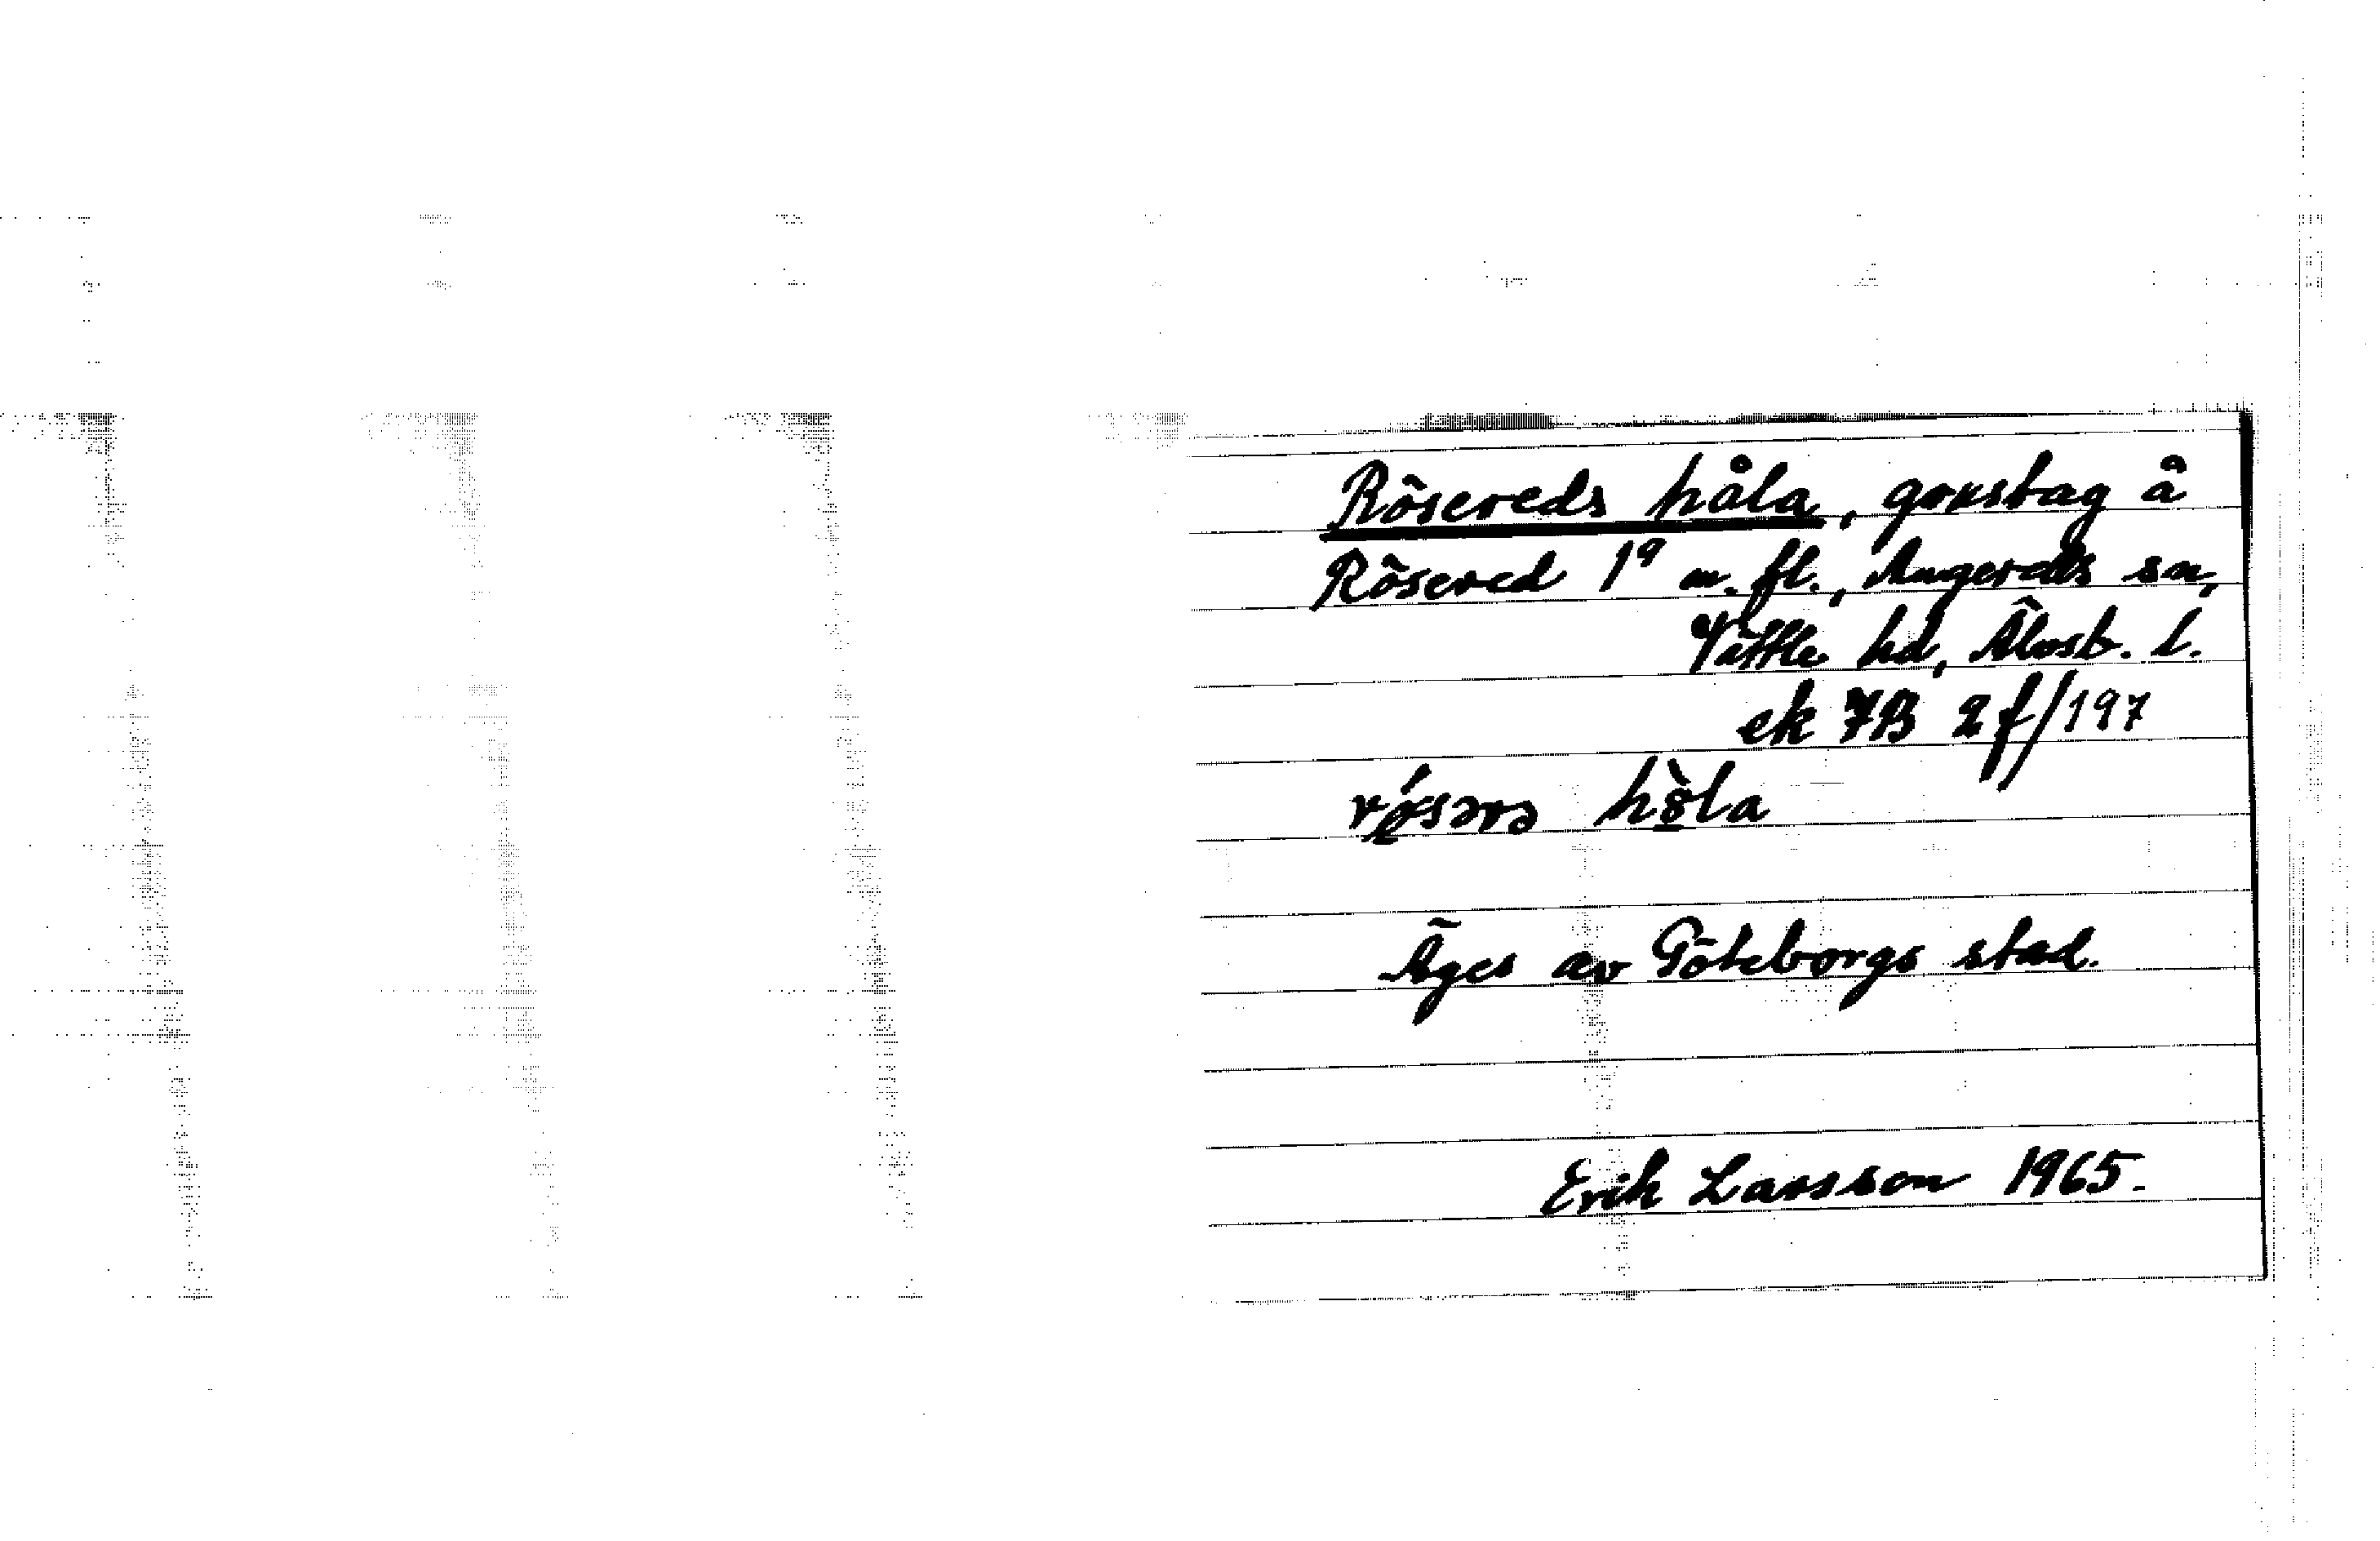 Rösereds håla, grustag å
Rösered 1⁹ m. fl., Angereds sn,
Vättle hd, Älvsb. l.
ek 7B 2f/197
Äges av Göteborgs stad.
Erik Larsson 1965.